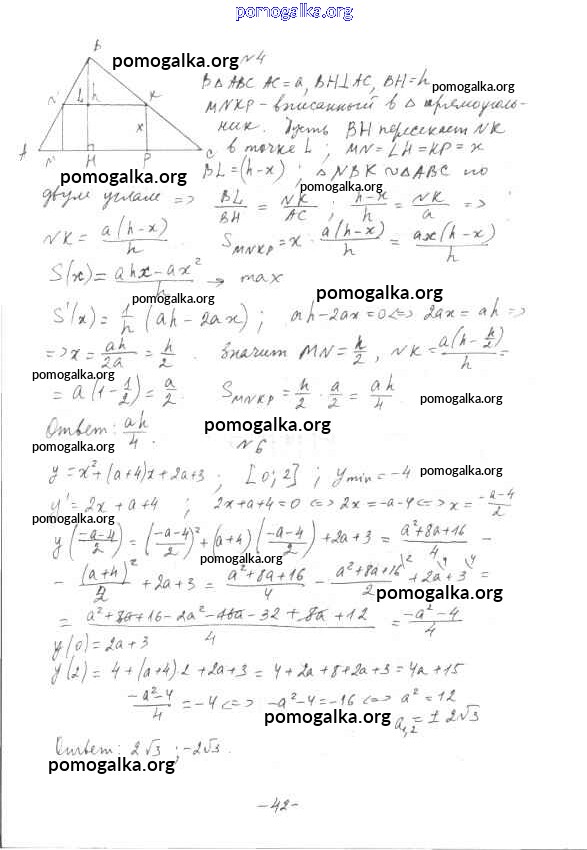 pomogalka.org
B
№4
pomogalka.org
В △ ABC AC = a, BH ⊥ AC, BH = h
pomogalka.org
N L h K
MNKP - вписанный в △ прямоуголь-
ник. Пусть BH пересекает NK
x
A M H P C
в точке L ; MN = LH = KP = x
pomogalka.org
BL = (h-x) ; △ NBK ∾ △ABC по
pomogalka.org
двум углам => BL/BH = NK/AC ; h-x/h = NK/a =>
NK = a(h-x)/h . S_MNKP = x · a(h-x)/h = ax(h-x)/h
pomogalka.org
S(x) = ahx-ax²/h → max
pomogalka.org pomogalka.org
S'(x) = 1/h (ah-2ax) ; ah-2ax=0 <=> 2ax = ah =>
=> x = ah/2a = h/2 . Значит MN = h/2 , NK = a(h-h/2)/h =
pomogalka.org
= a(1-1/2) = a/2 . S_MNKP = h/2 · a/2 = ah/4
pomogalka.org
Ответ: ah/4 .
pomogalka.org
№6
pomogalka.org
y = x²+(a+4)x+2a+3 ; [0;2] ; y min = -4
pomogalka.org
y' = 2x+a+4 ; 2x+a+4=0 <=> 2x=-a-4 <=> x = -a-4/2
pomogalka.org
y(-a-4/2) = (-a-4/2)² + (a+4)(-a-4/2) + 2a+3 = a²+8a+16/4 -
pomogalka.org
- (a+4)²/2 + 2a+3 = a²+8a+16/4 - a²+8a+16/2 + 2a+3 =
pomogalka.org
= a²+8a+16-2a²-16a-32+8a+12/4 = -a²-4/4
y(0) = 2a+3
y(2) = 4+(a+4)·2+2a+3 = 4+2a+8+2a+3 = 4a+15
-a²-4/4 = -4 <=> -a²-4=-16 <=> a²=12
pomogalka.org
a₁,₂ = ± 2√3
Ответ: 2√3 ; -2√3 .
pomogalka.org
-42-